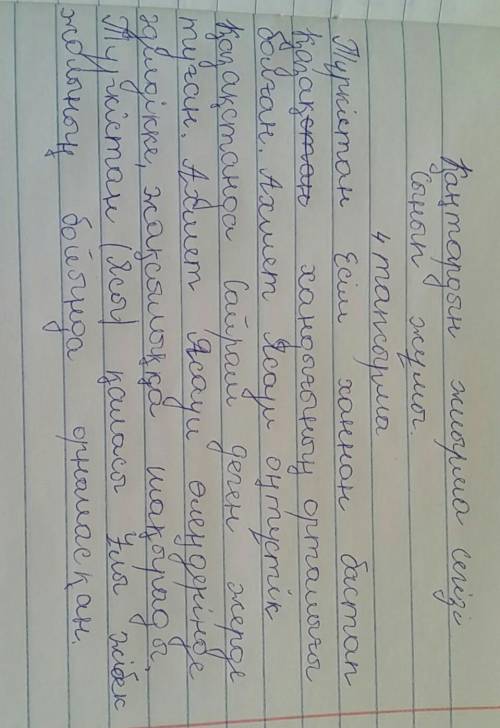 Қаңтардың жиырма сегізі
Сынып жұмыс.
4 тапсырма
Түркістан Есім ханнан бастап
Қазақстан хандығының орталығы
болған. Ахмет Ясауи оңтүстік
Қазақстанда Сайрам деген жерде
туған. Ахмет Ясауи өлеңдерінде
әділдікке, жақсылыққа шақырады,
Түркістан (Ясы) қаласы Ұлы жібек
жолының бойында орналасқан.